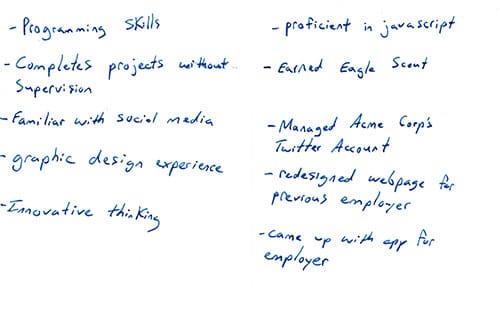 - Programming Skills
- Completes projects without
Supervision
- Familiar with social media
- graphic design experience
- Innovative thinking
- proficient in javascript
- Earned Eagle Scout
- Managed Acme Corp's
Twitter Account
- redesigned webpage for
previous employer
- came up with app for
employer